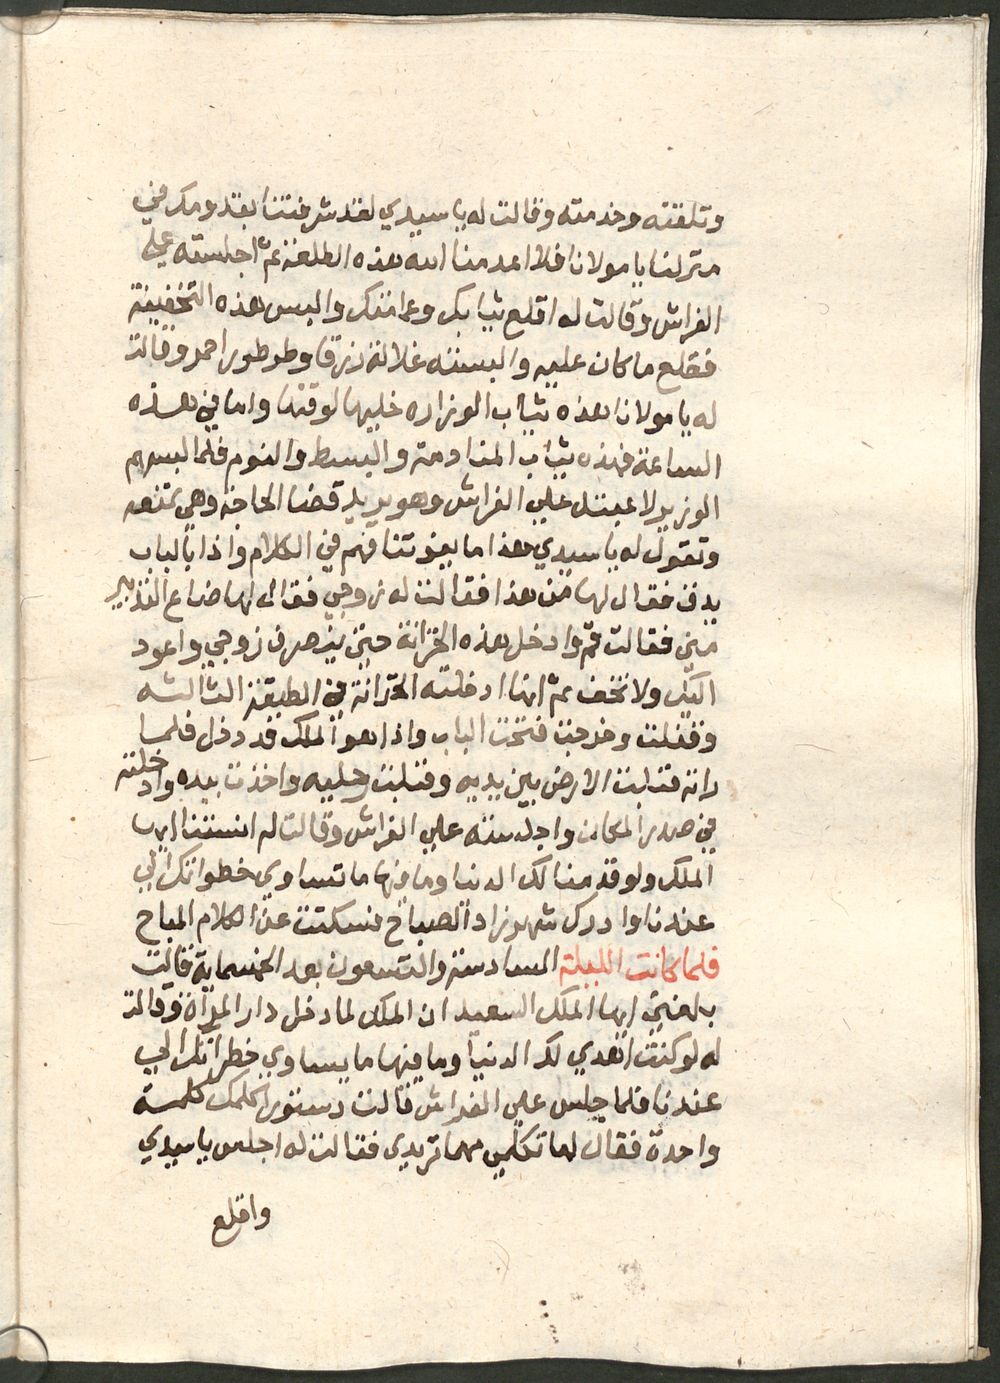 وتلقته وخدمته وقالت له يا سيدي لقد شرفتنا بقدومك في
منزلنا يا مولانا فلا اعدمنا الله هذه الطلعة ثم اجلسته علي
الفراش وقالت له اقلع ثيابك وعمامتك والبس هذه التخفيفة
فقلع ما كان عليه والبسته غلالة زرقا وطرطور احمر وقالت
له يا مولانا هذه ثياب الوزاره خليها لوقتها واما في هذه
الساعة فهذه ثياب المنادمة والبسط والنوم فلما لبسهم
الوزير لاعبته علي الفراش وهو يريد قضا الحاجة وهي تمنعه
وتقول له يا سيدي هذا ما يفوتنا فهم في الكلام واذا بالباب
يدق فقال لها من هذا فقالت له زوجي فقال لها ضاع التدبير
مني فقالت قم وادخل هذه الخزانة حتي ينصرف زوجي واعود
اليك ولا تخف ثم انها ادخلته الخزانة في الطبقة الثالثه
وقفلت وخرجت فتحت الباب واذا هو الملك قد دخل فلما
راته قبلت الارض بين يديه وقبلت رجليه واخذت بيده وادخلته
في صدر المكان واجلسته علي الفراش وقالت له انستنا ايها
الملك ولو قدمنا لك الدنيا وما فيها ما تساوي خطواتك الي
عندنا وادرك شهرزاد الصباح فسكتت عن الكلام المباح
فلما كانت الليلة السادسة والتسعون بعد الخمسماية قالت
بلغني ايها الملك السعيد ان الملك لما دخل دار المرأة وقالت
له لو كنت اهدي لك الدنيا وما فيها ما يساوي خطواتك الي
عندنا فلما جلس علي الفراش قالت دستور اكلمك كلمة
واحدة فقال لها تكلمي مهما تريدي فقالت له اجلس يا سيدي
واقلع